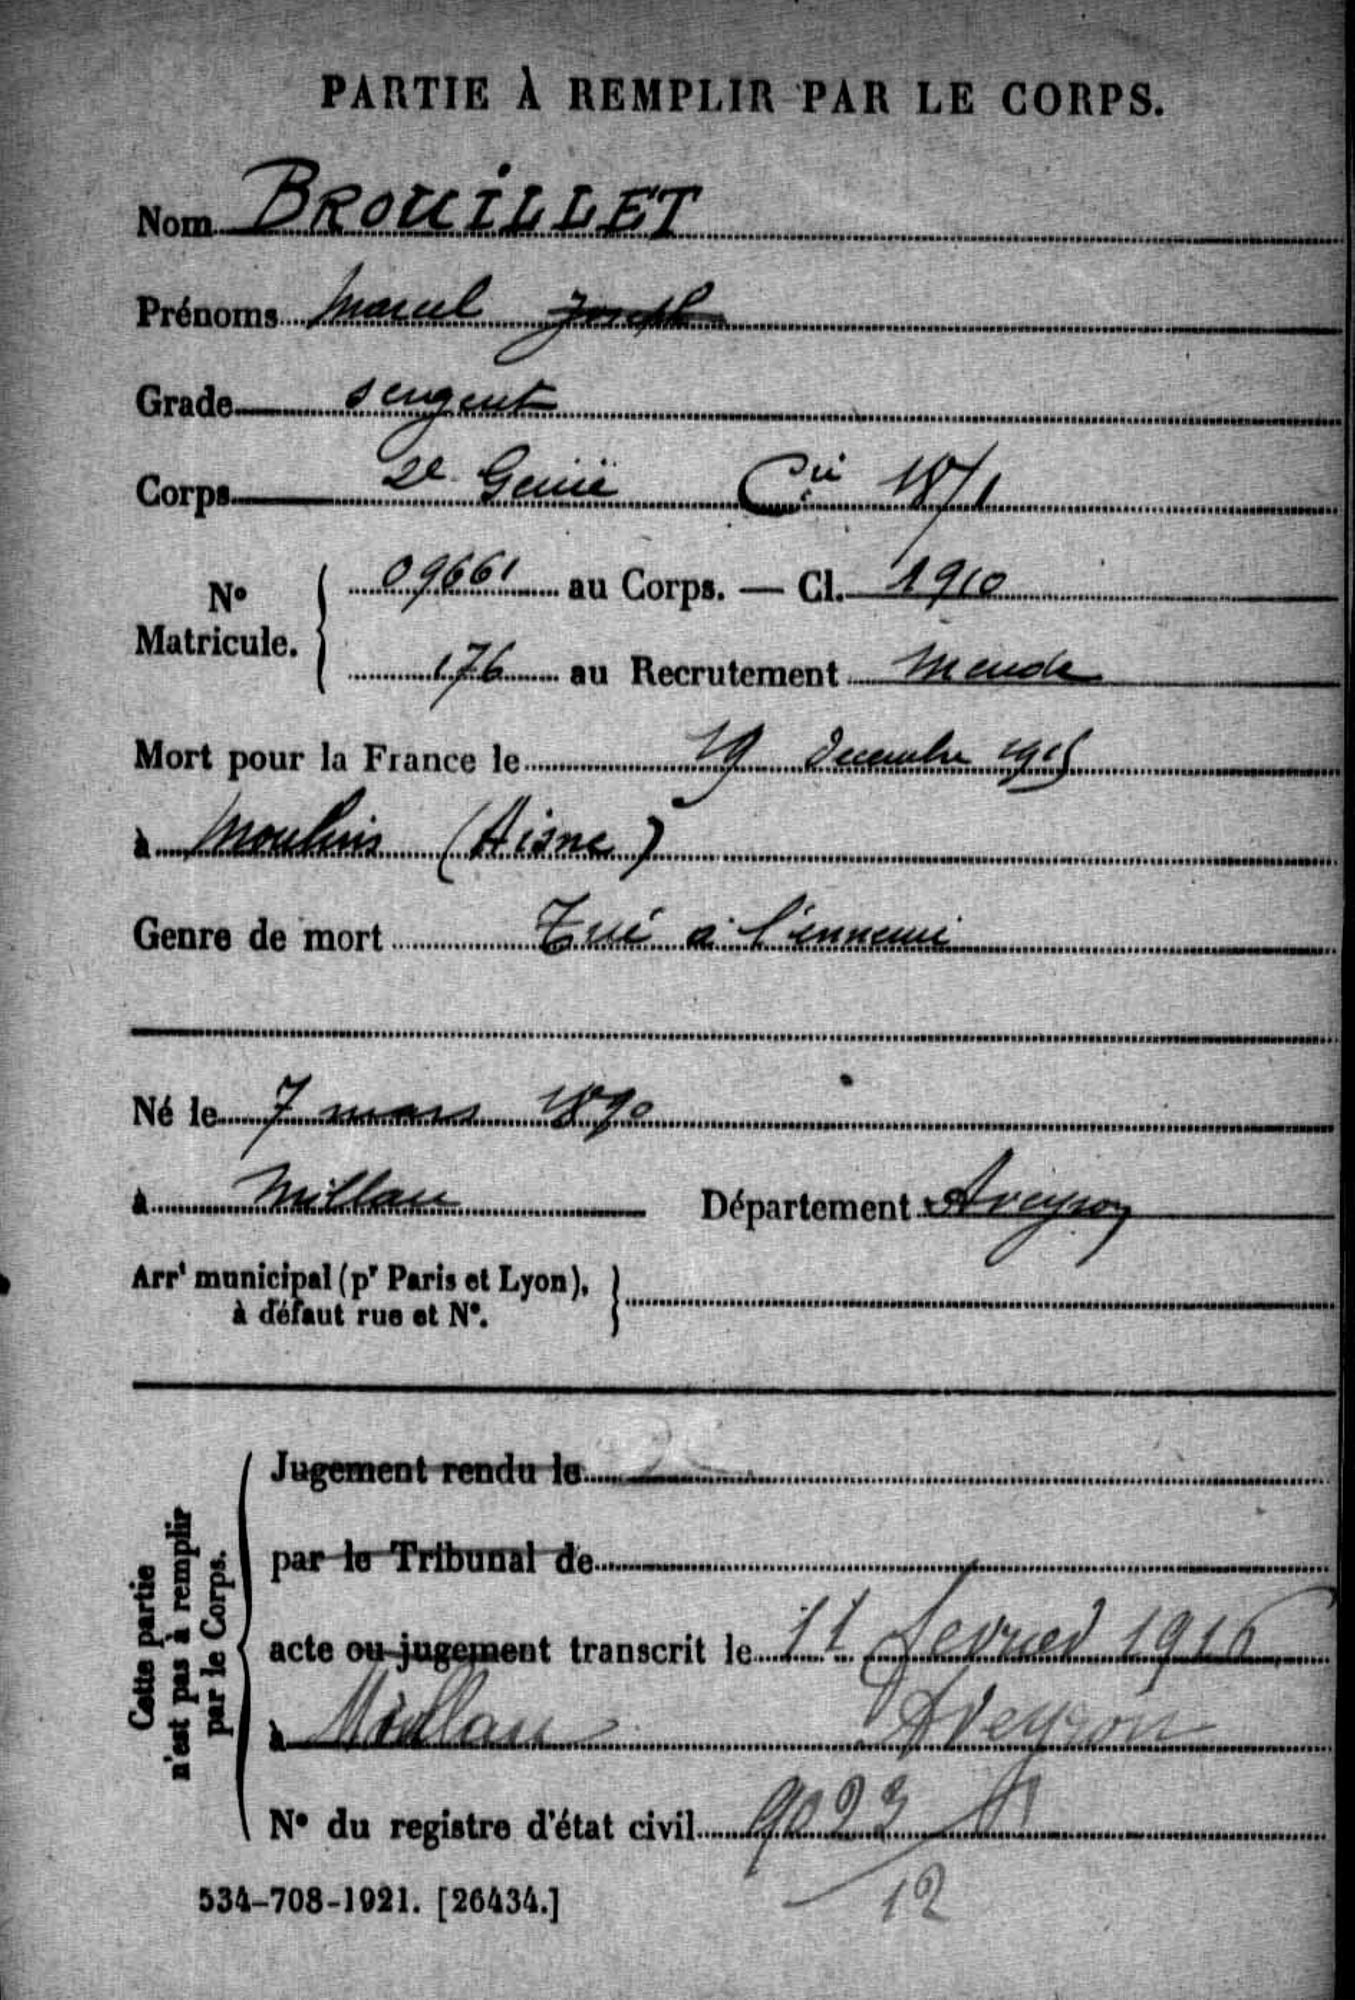 PARTIE À REMPLIR PAR LE CORPS.
Nom BROUILLET
Prénoms Marcel Joseph
Grade sergent
Corps 2e Génie Cie 18/1
No Matricule. 09661 au Corps. — Cl. 1910
176 au Recrutement Mende
Mort pour la France le 19 décembre 1915
à Moulins (Aisne)
Genre de mort Tué à l'ennemi
Né le 7 mars 1890
à Millau Département Aveyron
Arrt municipal (pr Paris et Lyon),
à défaut rue et No.
Cette partie
n'est pas à remplir
par le Corps.
Jugement rendu le
par le Tribunal de
acte ou jugement transcrit le 11 fevrier 1916
à Millau Aveyron
No du registre d'état civil 9023
12
534-708-1921. [26434.]